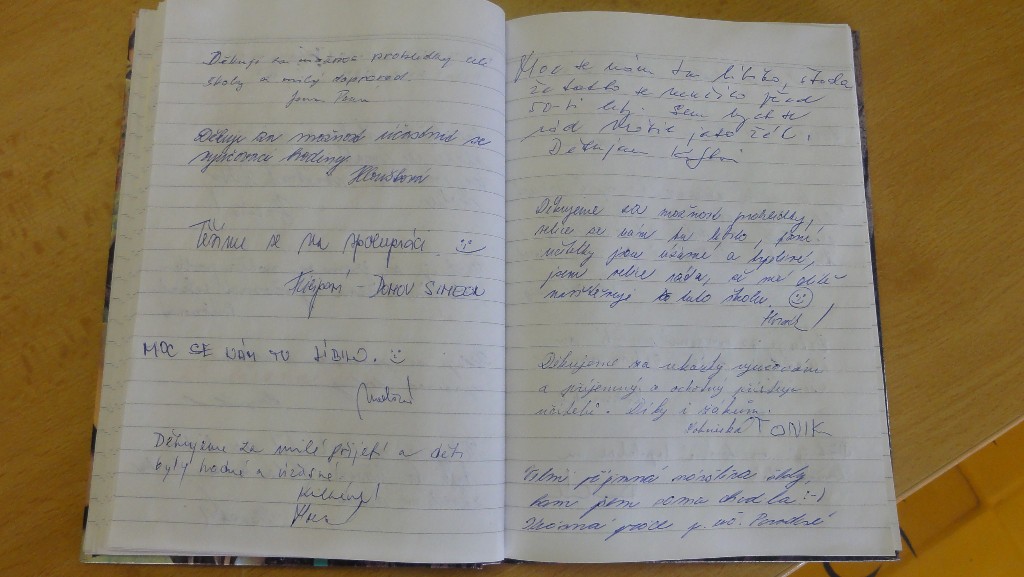 Děkuji za možnost prohlídky celé
školy a milý doprovod.
Děkuji za možnost účastnit se
vyučovací hodiny.
Těšíme se na spolupráci :)
- DOMOV SIMEON
MOC SE NÁM TU LÍBILO. :)
Děkujeme za milé přijetí a děti
byly hodné a úžasné
Moc se nám tu líbilo, škoda
že takto se neučilo před
50-ti lety. Sem bych se
rád vrátil jako žák.
Děkujeme za možnost prohlídky,
velice se nám tu líbilo, paní
učitelky jsou úžasné a
jsem velice ráda, že mé dítě
navštěvuje tuto školu. :)
Děkujeme za ukázky vyučování
a příjemný a ochotný přístup
učitelů. Díky i žákům.
TONIK
Velmi příjemná návštěva školy,
kam jsem sama chodila :-)
práce p. uč.